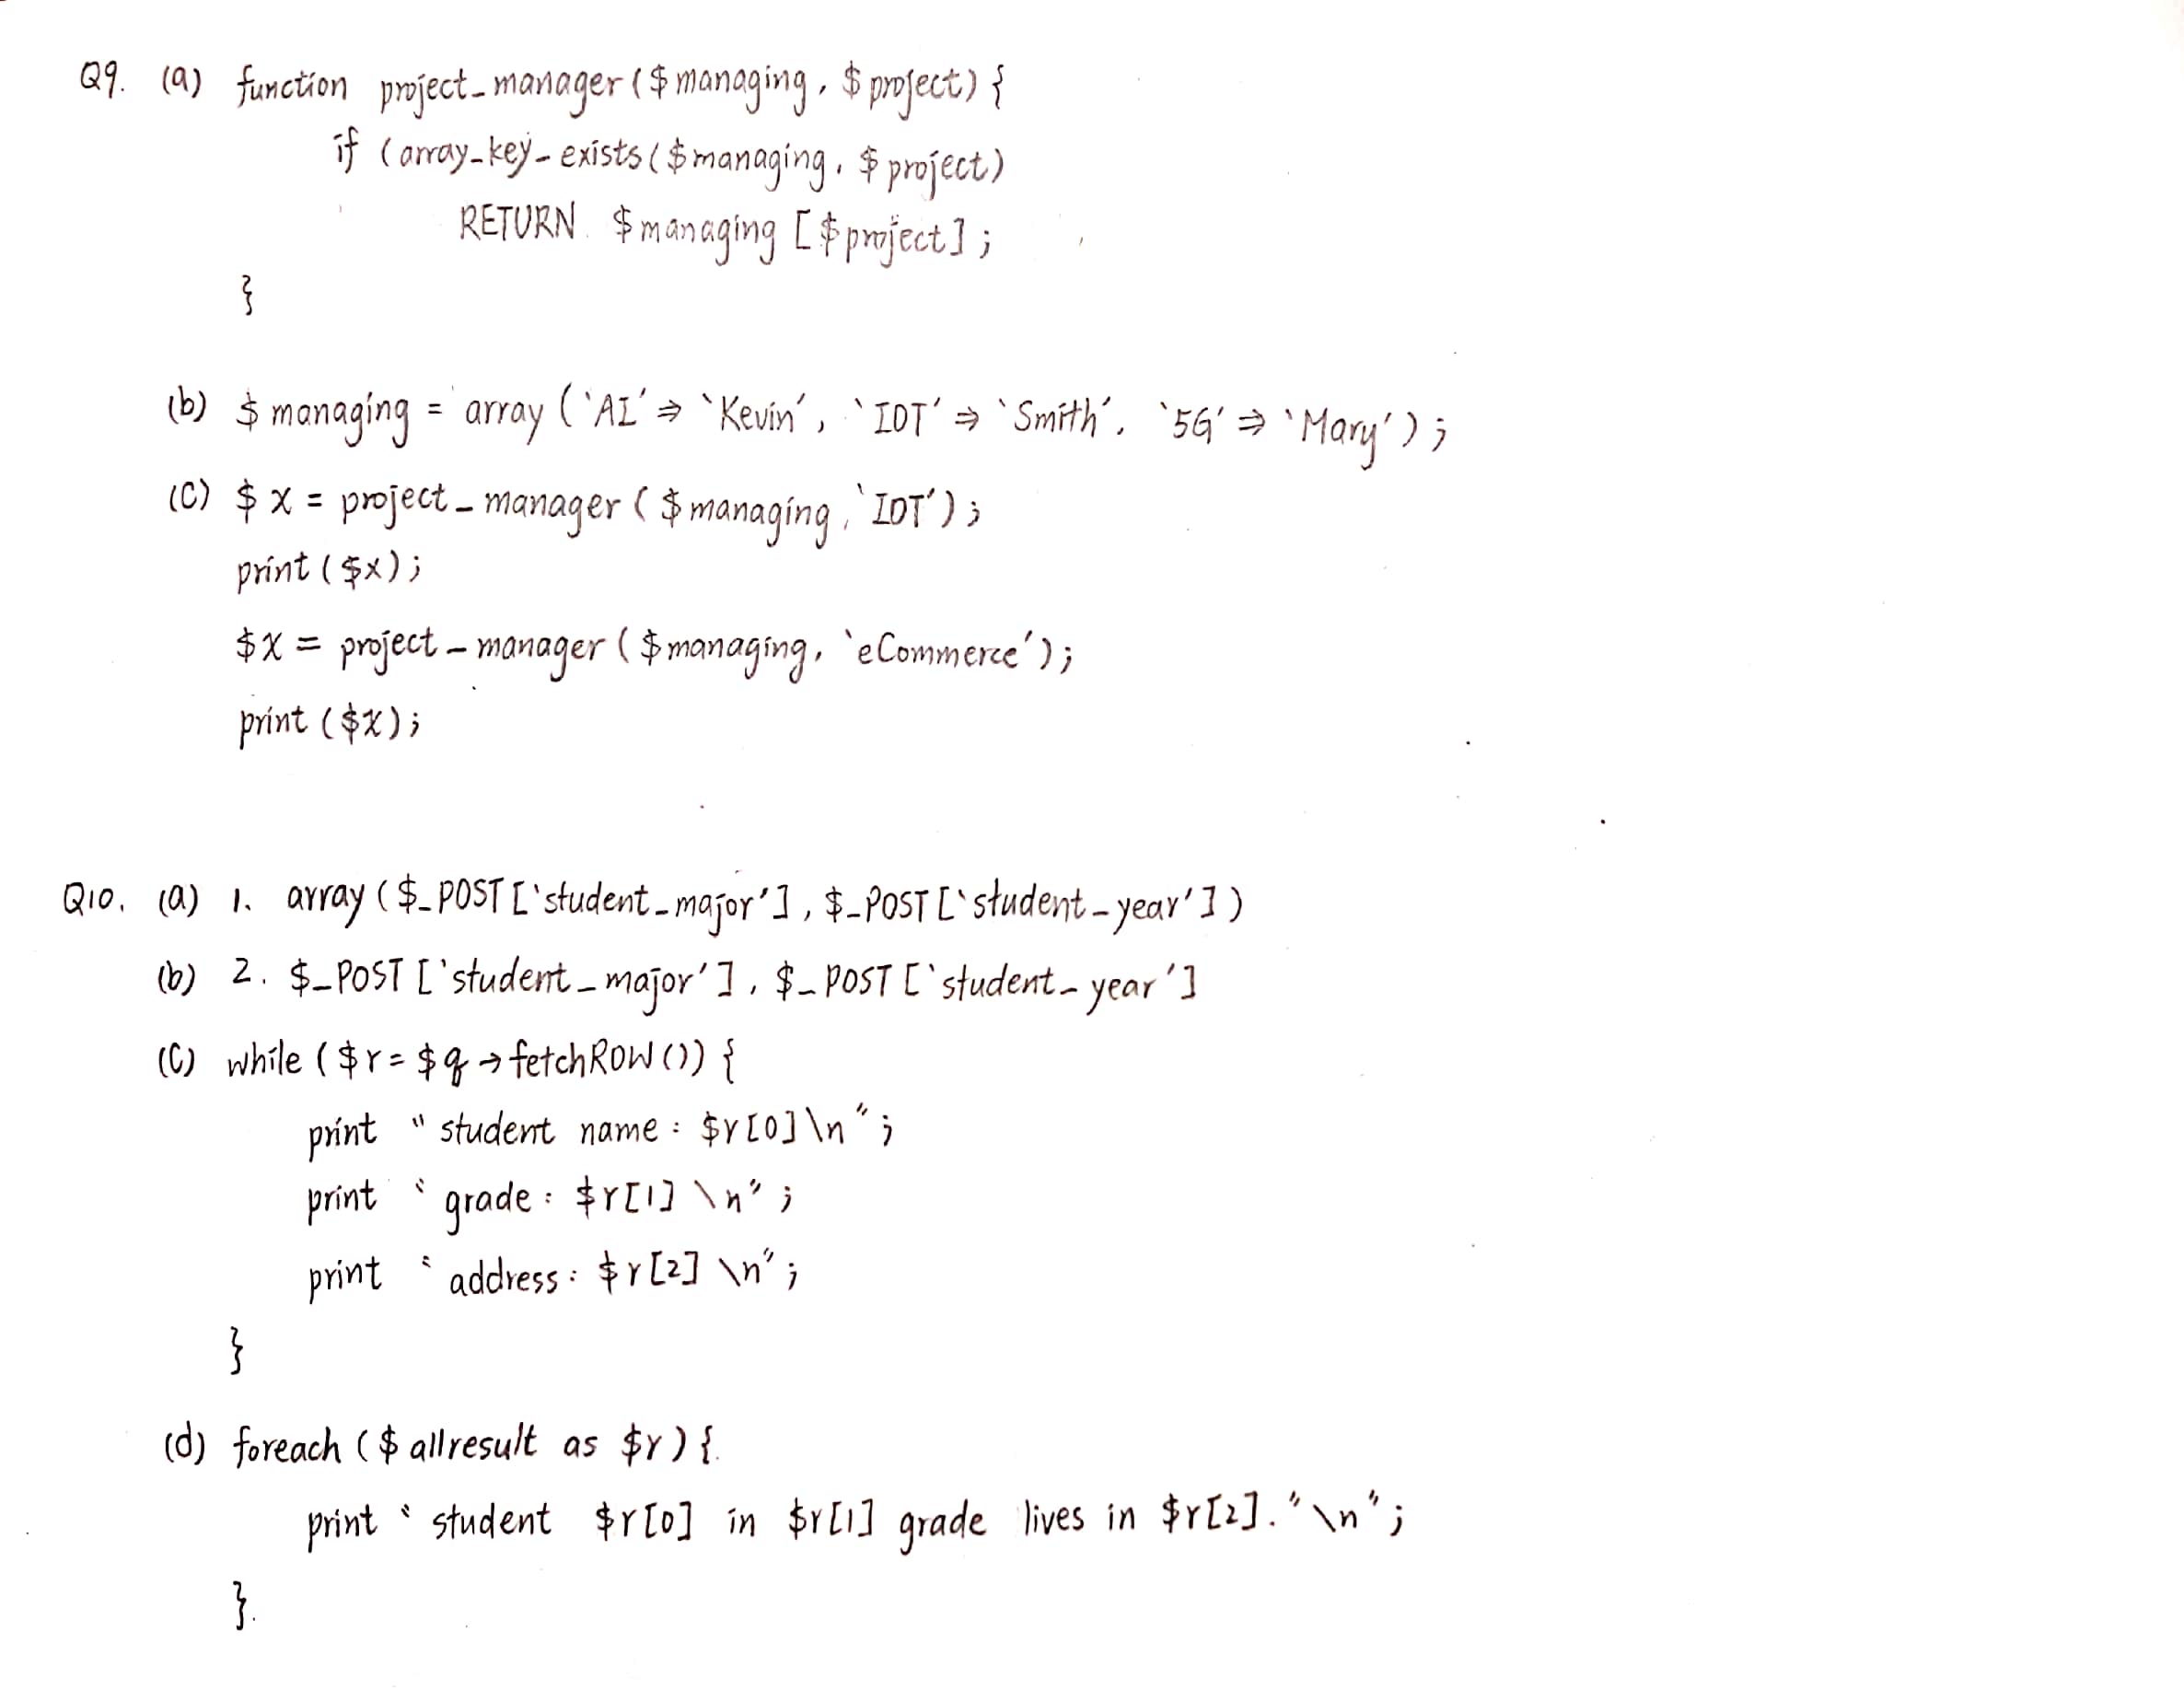 Q9. (a) function project_manager ($managing, $project) {
if (array_key_exists ($managing, $project)
RETURN $managing [$project];
}
(b) $managing = array ('AI' => 'Kevin', 'IOT' => 'Smith', '5G' => 'Mary');
(C) $x = project_manager ($managing, 'IOT');
print ($x);
$x = project_manager ($managing, 'eCommerce');
print ($x);
Q10. (a) 1. array ($_POST ['student_major'], $_POST ['student_year'])
(b) 2. $_POST ['student_major'], $_POST ['student_year']
(C) while ($r = $q → fetchROW ()) {
print "student name : $r[0]\n";
print "grade : $r[1] \n";
print "address : $r[2] \n";
}
(d) foreach ($allresult as $r) {
print "student $r[0] in $r[1] grade lives in $r[2]."\n";
}.